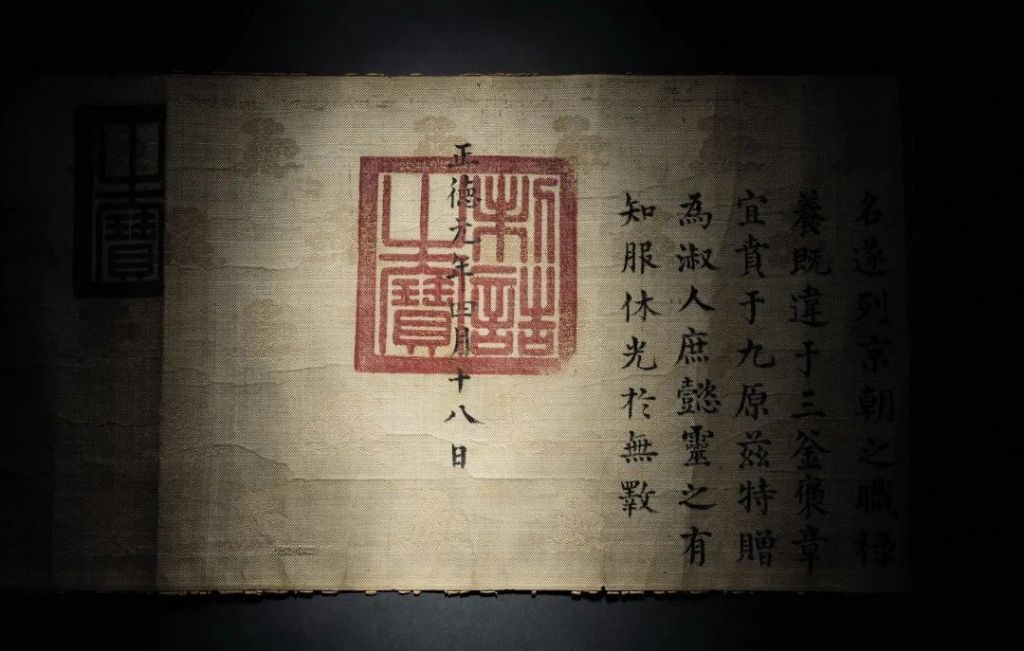 名遂列京朝之職祿
養既違于三釜褒章
宜賁于九原茲特贈
為淑人庶懿靈之有
知服休光於無斁
正德元年四月十八日
制誥之寶
之寶